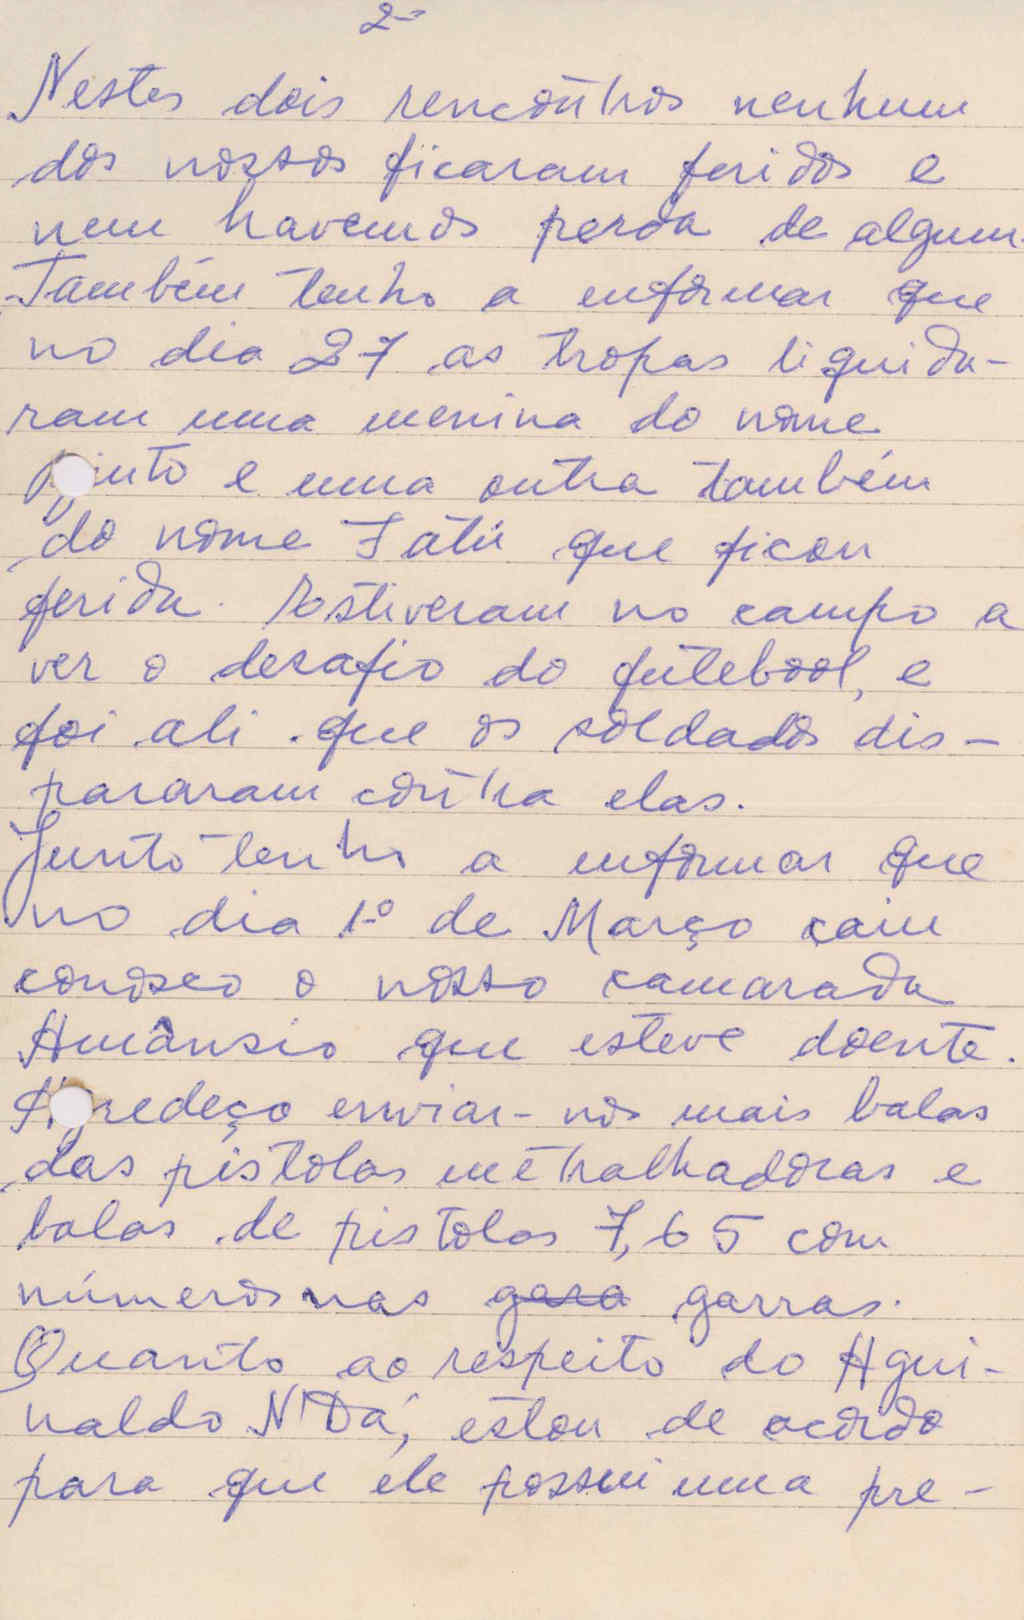 2-
Nestes dois rencontros nenhum
dos nossos ficaram feridos e
nem havemos perda de algum.
Também tenho a enformar que
no dia 27 as tropas liquida-
ram uma menina do nome
e uma outra também
do nome Fatú que ficou
ferida. Estiveram no campo a
ver o desafio do futebool, e
foi ali que os soldados dis-
pararam contra elas.
Junto tenho a enformar que
no dia 1º de Março caiu
conosco o nosso camarada
Amânsio que esteve doente.
Agredeço enviar-nos mais balas
das pistolas metralhadoras e
balas de pistolas 7,65 com
números nas gara garras.
Quanto ao respeito do Agui-
naldo N'Dá, estou de acordo
para que ele possui uma pre-